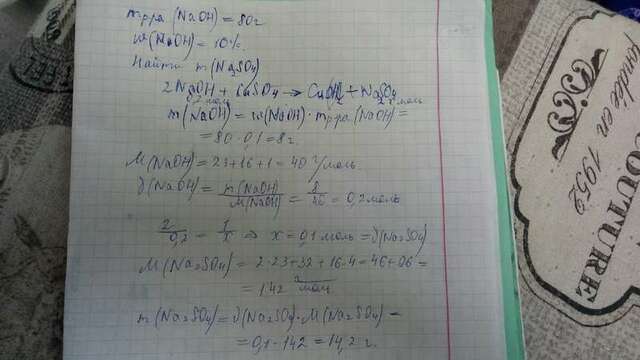 m р-ра (NaOH) = 80г
w(NaOH) = 10%.
Найти m(Na2SO4)
2NaOH + CuSO4 → Cu(OH)2 + Na2SO4
0,2 моль x моль
m(NaOH) = w(NaOH) · m р-ра (NaOH) =
= 80 · 0,1 = 8 г.
M(NaOH) = 23+16+1 = 40 г/моль
ϑ(NaOH) = m(NaOH)/M(NaOH) = 8/40 = 0,2 моль
2/0,2 = 1/x ⇒ x = 0,1 моль = ϑ(Na2SO4)
M(Na2SO4) = 2·23+32+16·4 = 46+96 =
= 142 г/моль
m(Na2SO4) = ϑ(Na2SO4)·M(Na2SO4) =
= 0,1·142 = 14,2 г.
en 1952
COUTURE